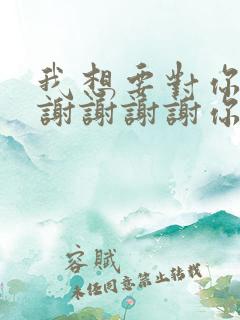 我想要對你
謝謝謝謝你
容賦
未任同意禁止转载